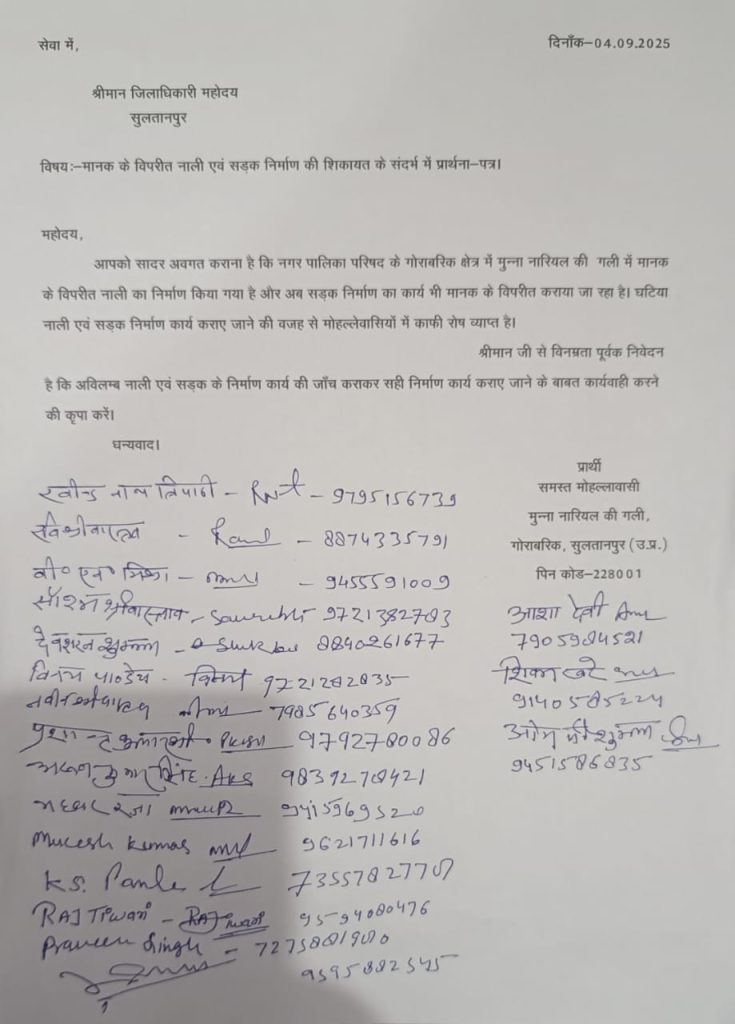 सेवा में,
दिनाँक–04.09.2025
श्रीमान जिलाधिकारी महोदय
सुलतानपुर
विषयः–मानक के विपरीत नाली एवं सड़क निर्माण की शिकायत के संदर्भ में प्रार्थना–पत्र।
महोदय,
आपको सादर अवगत कराना है कि नगर पालिका परिषद के गोराबरिक क्षेत्र में मुन्ना नारियल की गली में मानक
के विपरीत नाली का निर्माण किया गया है और अब सड़क निर्माण का कार्य भी मानक के विपरीत कराया जा रहा है। घटिया
नाली एवं सड़क निर्माण कार्य कराए जाने की वजह से मोहल्लेवासियों में काफी रोष व्याप्त है।
श्रीमान जी से विनम्रता पूर्वक निवेदन
है कि अविलम्ब नाली एवं सड़क के निर्माण कार्य की जाँच कराकर सही निर्माण कार्य कराए जाने के बाबत कार्यवाही करने
की कृपा करें।
धन्यवाद।
प्रार्थी
समस्त मोहल्लावासी
मुन्ना नारियल की गली,
गोराबरिक, सुलतानपुर (उ.प्र.)
पिन कोड–228001
रवीन्द्र नाथ त्रिपाठी – – 9795156739
– 8874335791
वी० एन० मिश्रा – – 9455591009
सौरभ श्रीवास्तव – 9721382783
देवशरन शुक्ला – 8840261677
विनय पाण्डेय - 9721282835
7985640359
9792780086
सिंह 9839270421
रजा
Mukesh Kumar 9621711616
K.S.
RAJ Tiwari – RAJ Tiwari
Praveen Singh –
आशा देवी
शिखा
9140585224
ओम जी शुक्ला
9451586835